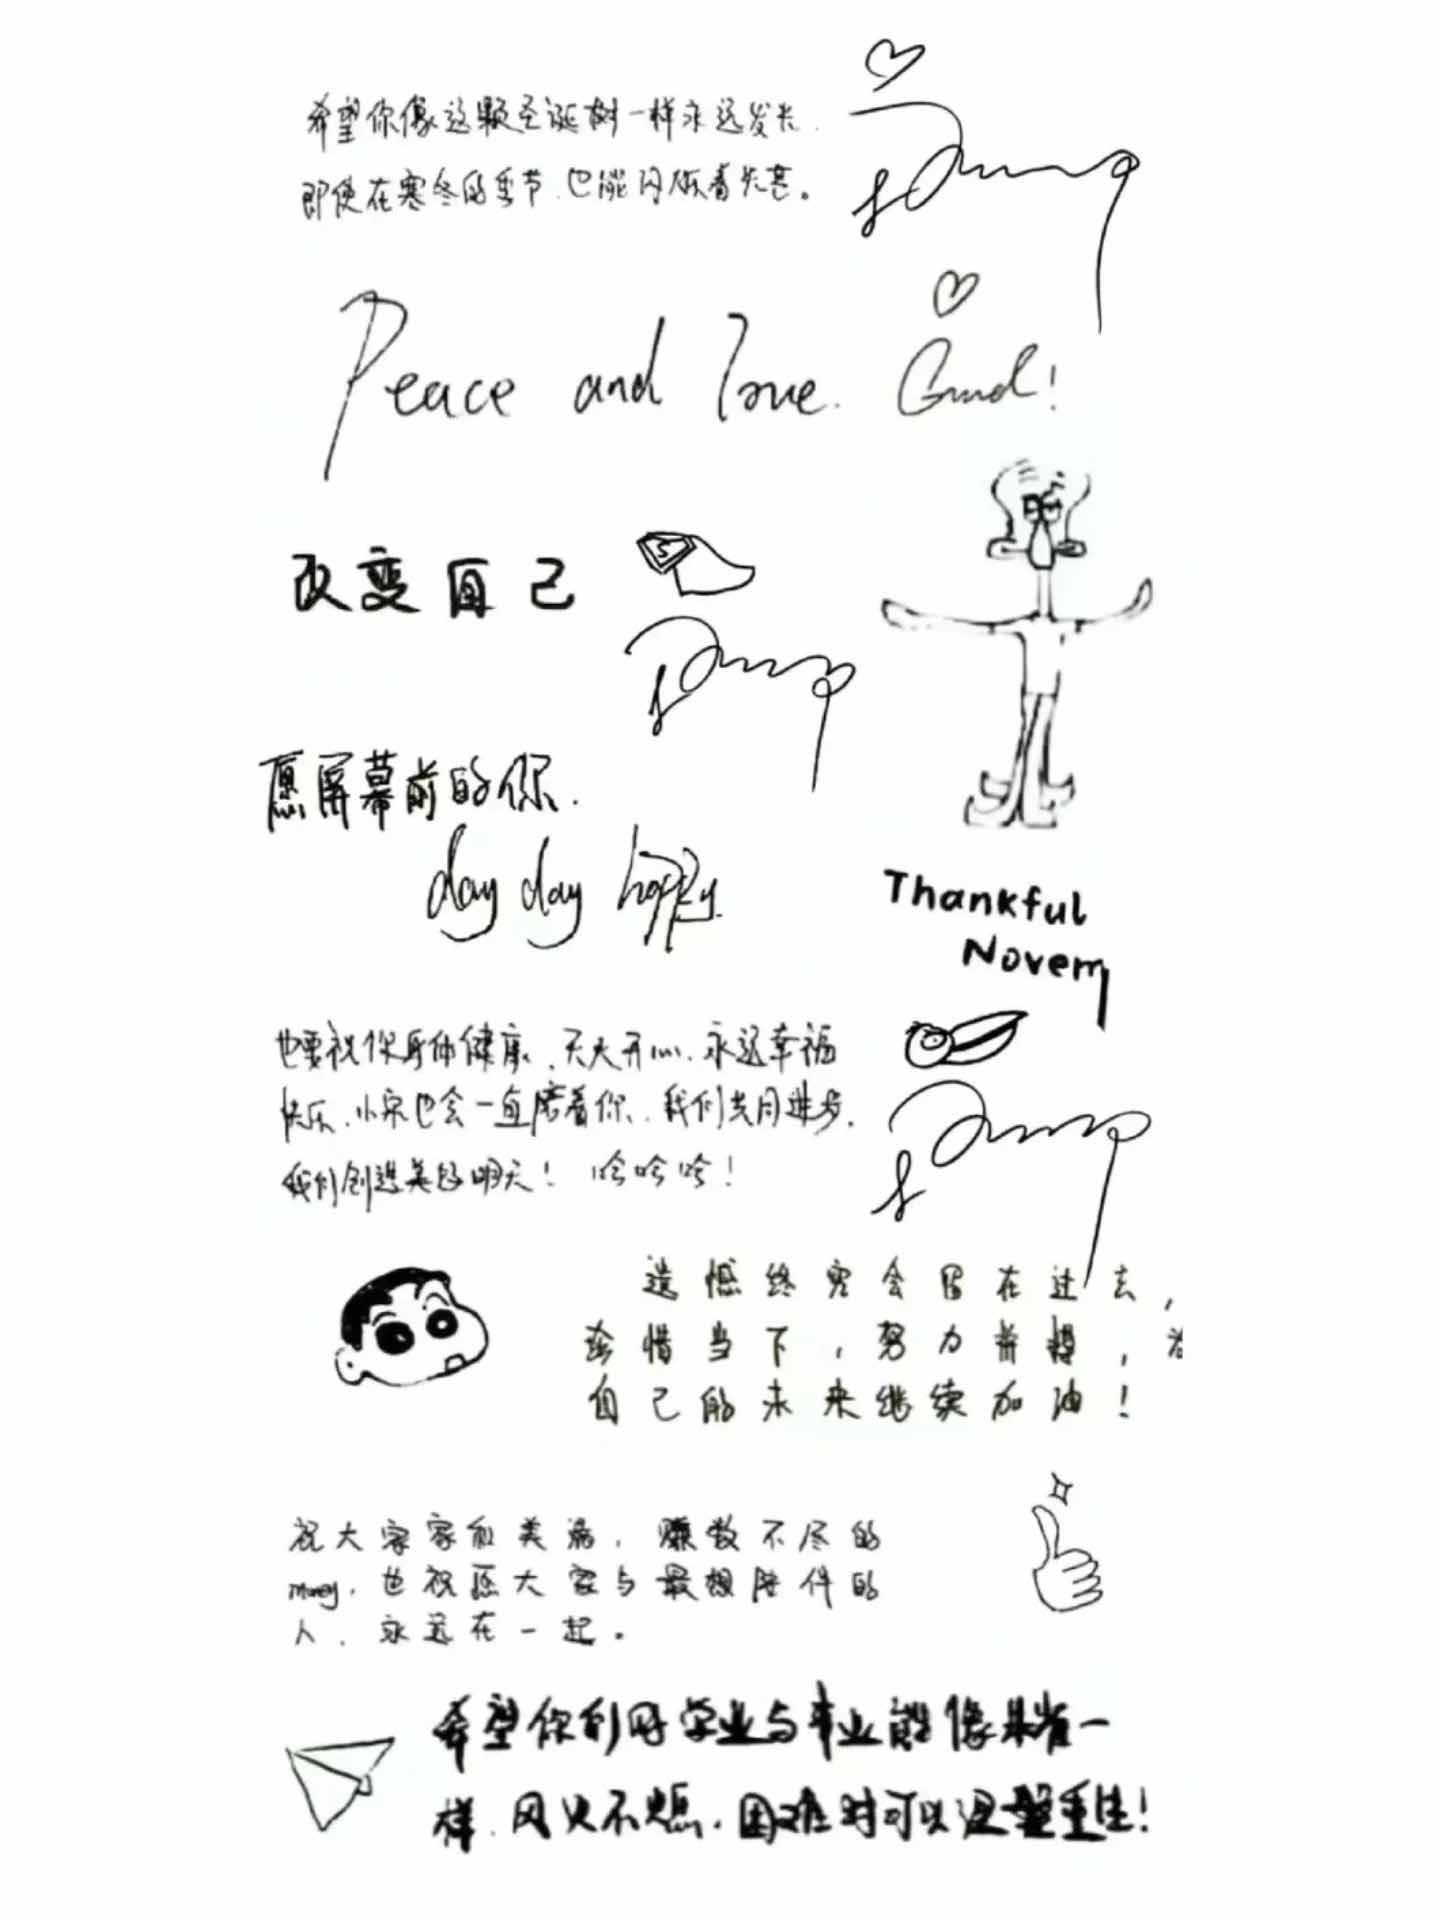 希望你像这颗圣诞树一样永远发光
即使在寒冬的季节，也能闪烁着光芒。
Peace and love.
改变自己
愿屏幕前的你.
day day happy.
Thankful
Novem
也要祝你身体健康、天天开心、永远幸福
快乐、小宋也会一直陪着你、我们共同进步、
我们创造美好明天！哈哈哈！
遗憾终究会留在过去，
珍惜当下，努力前程，为
自己的未来继续加油！
祝大家家和美满，赚数不尽的
money，也祝愿大家与最想陪伴的
人，永远在一起。
希望你们学业与事业能像朱雀一
样，风火不熄，困难时可以涅槃重生！